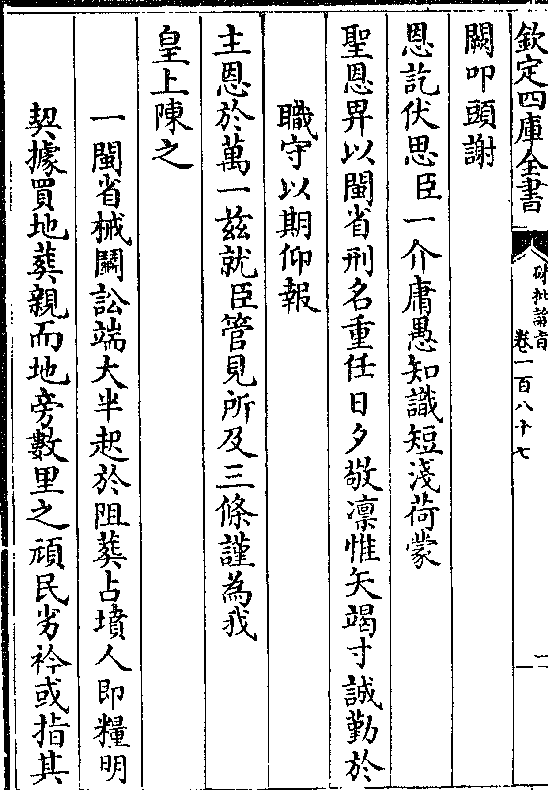 欽定四庫全書
硃批諭旨
卷一百八十七
二
闕叩頭謝
恩訖伏思臣一介庸愚知識短淺荷蒙
聖恩畀以閩省刑名重任日夕敬凛惟矢竭寸誠勤於
職守以期仰報
主恩於萬一兹就臣管見所及三條謹為我
皇上陳之
一閩省械鬬訟端大半起於阻葬占墳人即糧明
契據買地葬親而地旁數里之頑民劣衿或指其